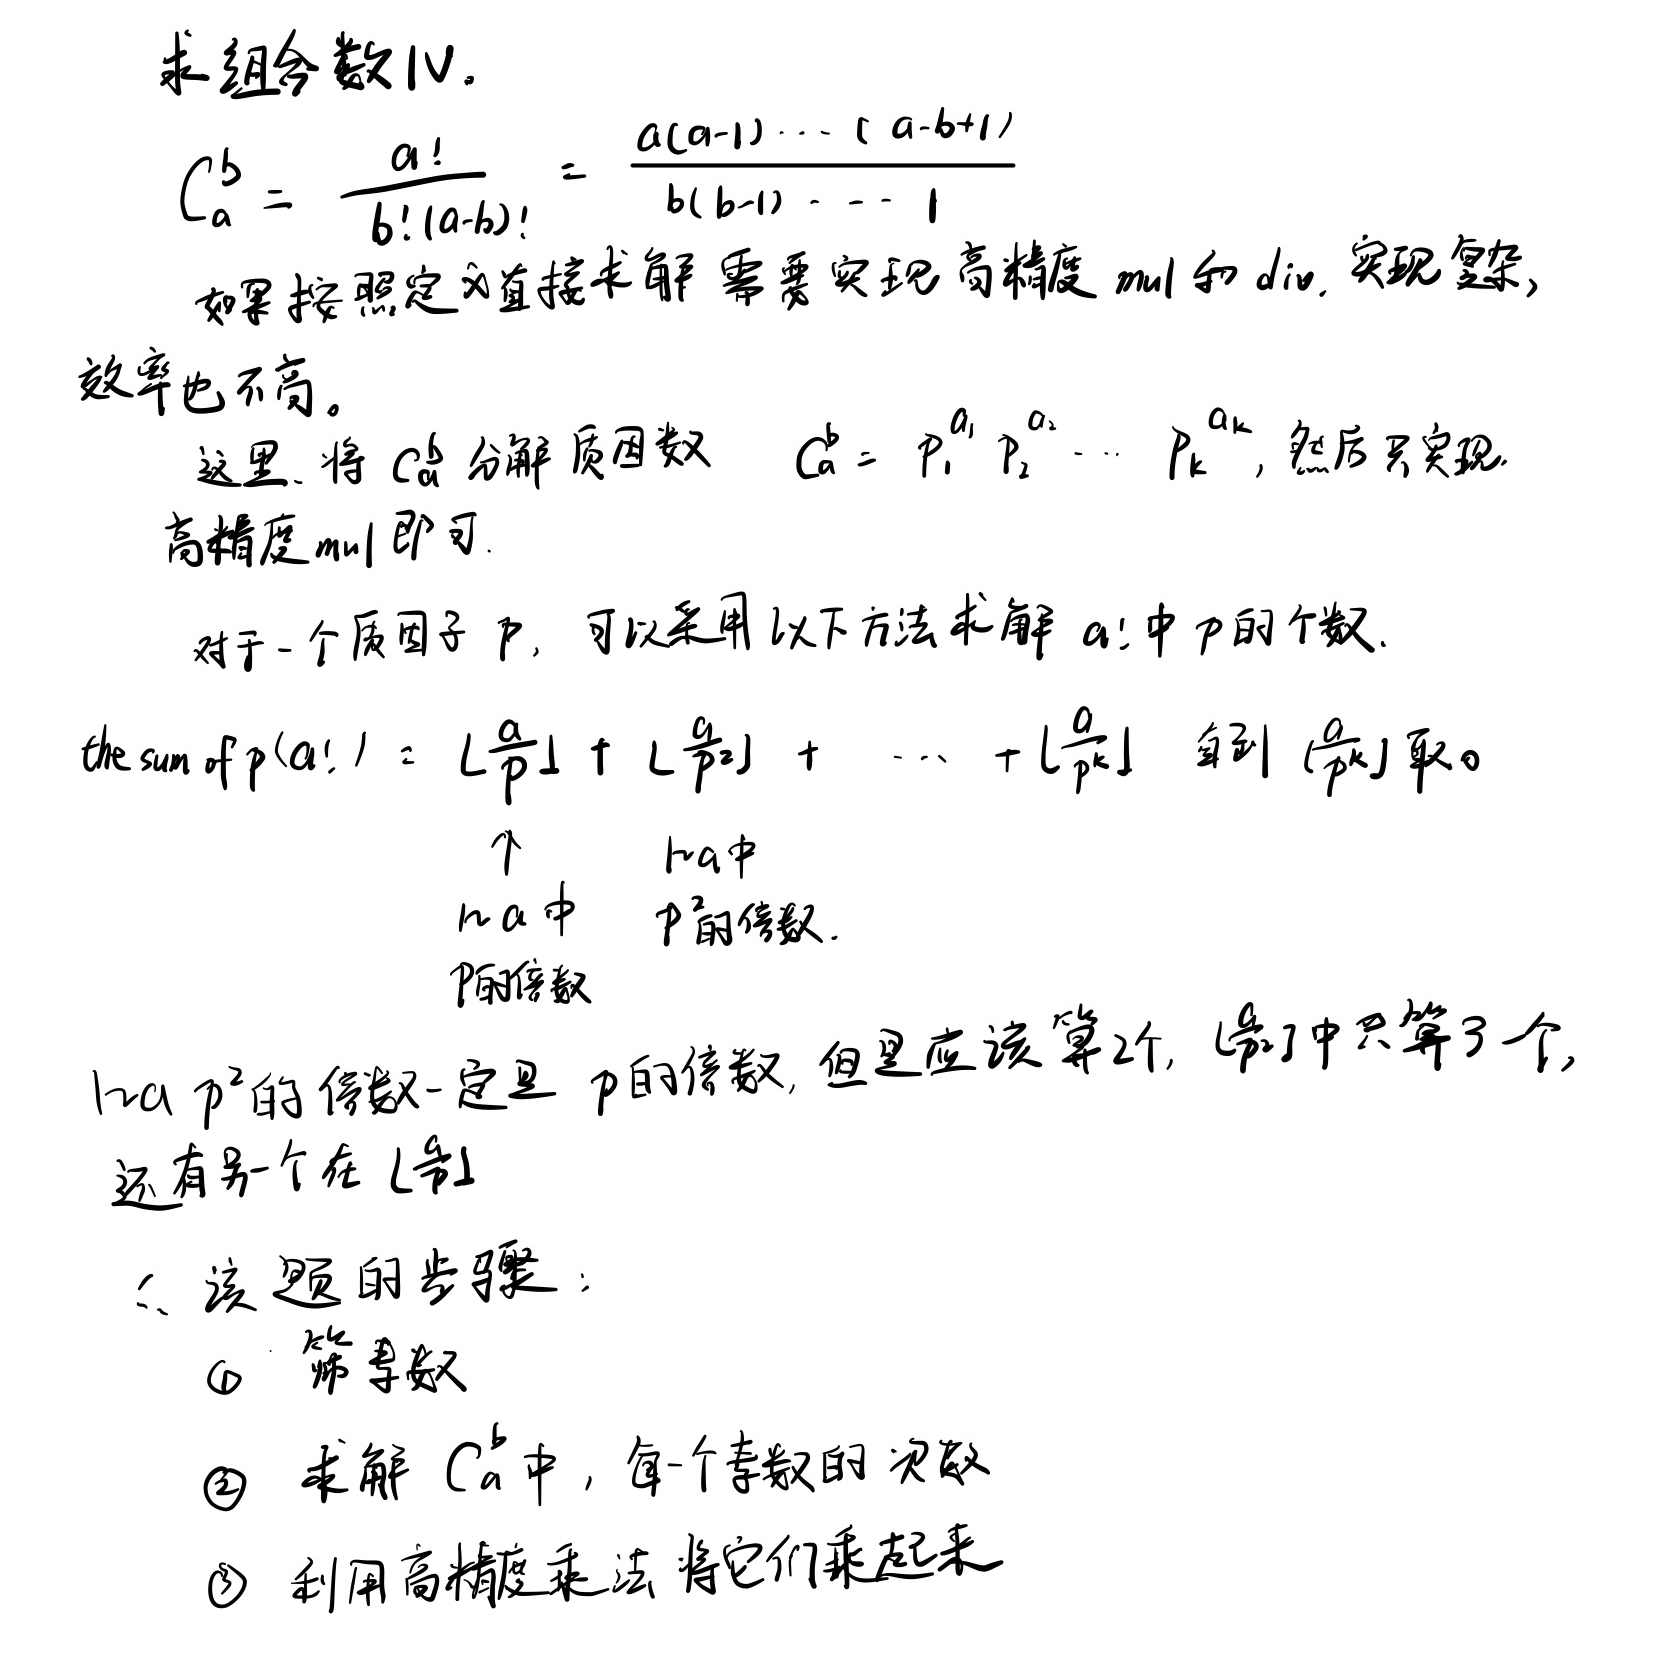 求组合数IV.
C_a^b = a! / b!(a-b)! = a(a-1)···(a-b+1) / b(b-1)····1
如果按照定义直接求解需要实现高精度mul和div.实现复杂,
效率也不高。
这里、将 C_a^b 分解质因数 C_a^b = P_1^{a_1} P_2^{a_2} ··· P_k^{a_k}, 然后只实现.
高精度mul即可.
对于一个质因子 p, 可以采用以下方法求解 a! 中 p 的个数.
the sum of p(a!) = ⌊a/p⌋ + ⌊a/p^2⌋ + ··· + ⌊a/p^k⌋ 直到 ⌊a/p^k⌋ 取0
↑ 1~a中
1~a中 p^2的倍数.
p的倍数
1~a p^2的倍数一定是 p的倍数, 但是应该算2个, ⌊a/p^2⌋中只算了一个,
还有另一个在 ⌊a/p⌋
∴ 该题的步骤:
① 筛素数
② 求解 C_a^b 中, 每一个素数的次数
③ 利用高精度乘法将它们乘起来